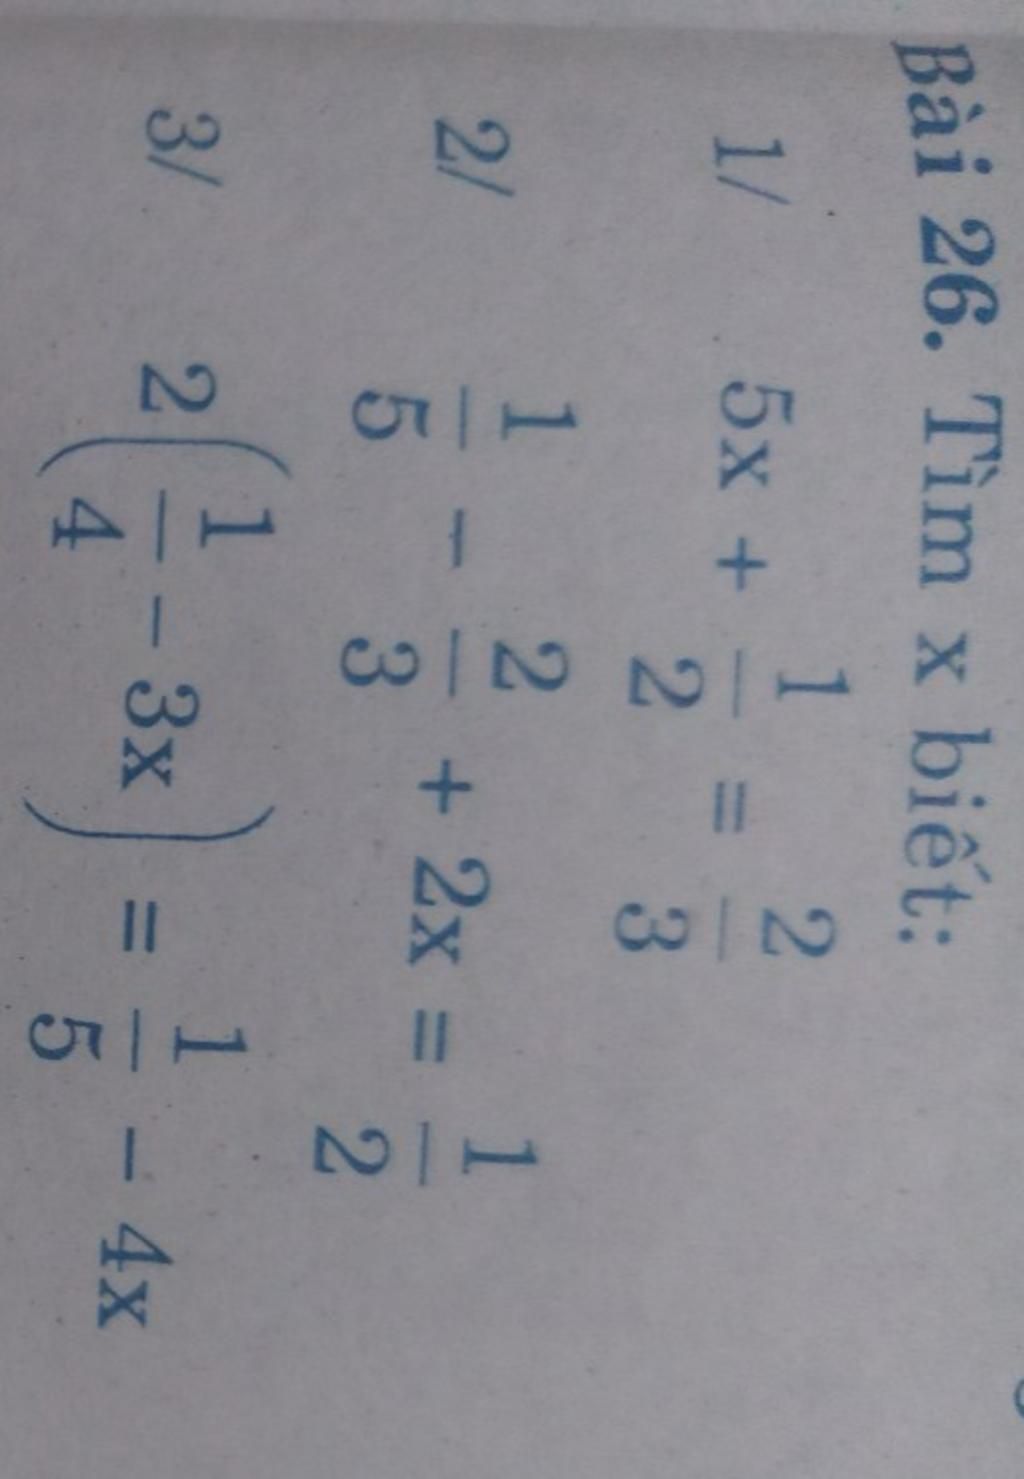 Bài 26. Tìm x biết:
1/ 5x + 1/2 = 2/3
2/ 1/5 - 2/3 + 2x = 1/2
3/ 2(1/4 - 3x) = 1/5 - 4x